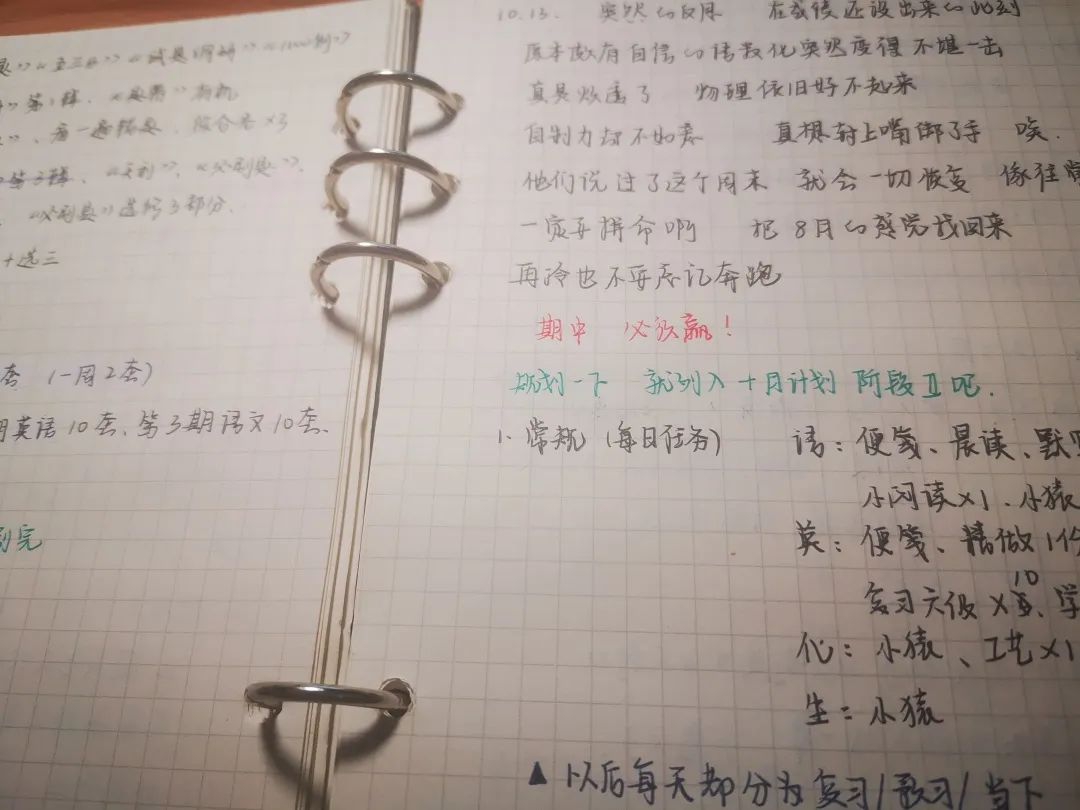 》《五三
》第1辑、《
》、看一遍错题、
《必刷题》、
《必刷题》选修3部分、
+选三
套 (一周2套)
英语10套、第3期语文10套、
刷完
10.13. 突然的 在成绩还没出来的此刻
原本最有自信的语数化突然变得不堪一击
真是 了 物理依旧好不起来
自制力却不如意 真想封上嘴绑了手 唉.
他们说过了这个周末 就会一切恢复 像往常
一定要拼命啊 把8月的感觉找回来
再冷也不要忘记奔跑
期中 必须赢!
规划一下 就列入十月计划 阶段Ⅱ吧.
1. 常规 (每日任务) 语: 便笺、晨读、默写
小阅读×1、小猿
英: 便笺、精做1份
复习六级×10页、学
化: 小猿、工艺×1
生: 小猿
▲ 以后每天都分为复习/预习/当下